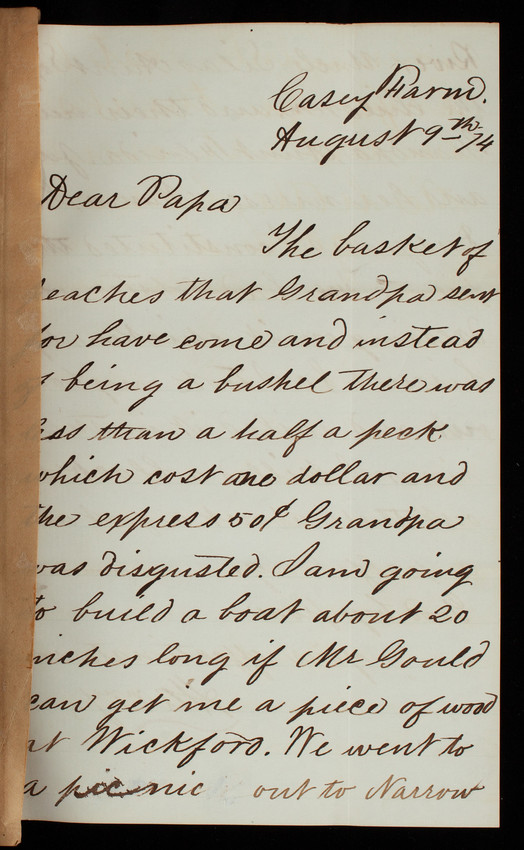 Casey Farm.
August 9th/74
Dear Papa
The basket of
Peaches that Grandpa sent
for have come and instead
of being a bushel there was
less than a half a peck
which cost one dollar and
the express 50¢ Grandpa
was disgusted. I am going
to build a boat about 20
inches long if Mr Gould
can get me a piece of wood
at Wickford. We went to
a picnic out to Narrow